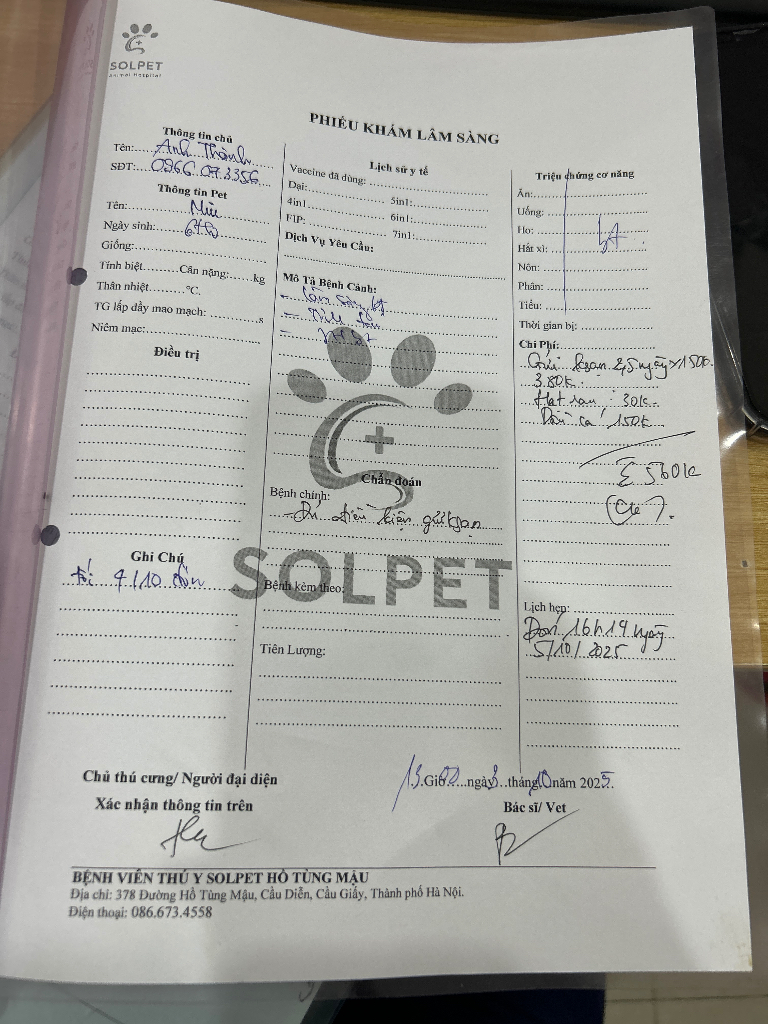 SOLPET
Animal Hospital
PHIẾU KHÁM LÂM SÀNG
Thông tin chủ
Tên: Anh Thành
SĐT: 0966.07.3356
Thông tin Pet
Tên:
Ngày sinh:
Giống:
Tính biệt Cân nặng: kg
Thân nhiệt °C.
TG lấp đầy mao mạch: s
Niêm mạc:
Điều trị
Ghi Chú
4/10 đón
Lịch sử y tế
Vaccine đã dùng:
Dại: 5in1:
4in1 6in1:
FIP: 7in1:
Dịch Vụ Yêu Cầu:
Mô Tả Bệnh Cảnh:
Chẩn đoán
Bệnh chính:
- Đủ điều kiện gửi ksạn
SOLPET
Bệnh kèm theo:
Tiên Lượng:
Triệu chứng cơ năng
Ăn:
Uống:
Ho:
Hắt xì:
Nôn:
Phân:
Tiểu:
Thời gian bị:
Chi Phí:
Gửi ksạn 2,5 ngày x 150k.
380k.
Hạt rau : 30k.
150k
Σ 560k
(Ck).
Lịch hẹn:
Đón 16h19 ngày
5/10/2025
Chủ thú cưng/ Người đại diện
Xác nhận thông tin trên
Giờ ngày 3 tháng 10 năm 2025.
Bác sĩ/ Vet
BỆNH VIỆN THÚ Y SOLPET HỒ TÙNG MẬU
Địa chỉ: 378 Đường Hồ Tùng Mậu, Cầu Diễn, Cầu Giấy, Thành phố Hà Nội.
Điện thoại: 086.673.4558